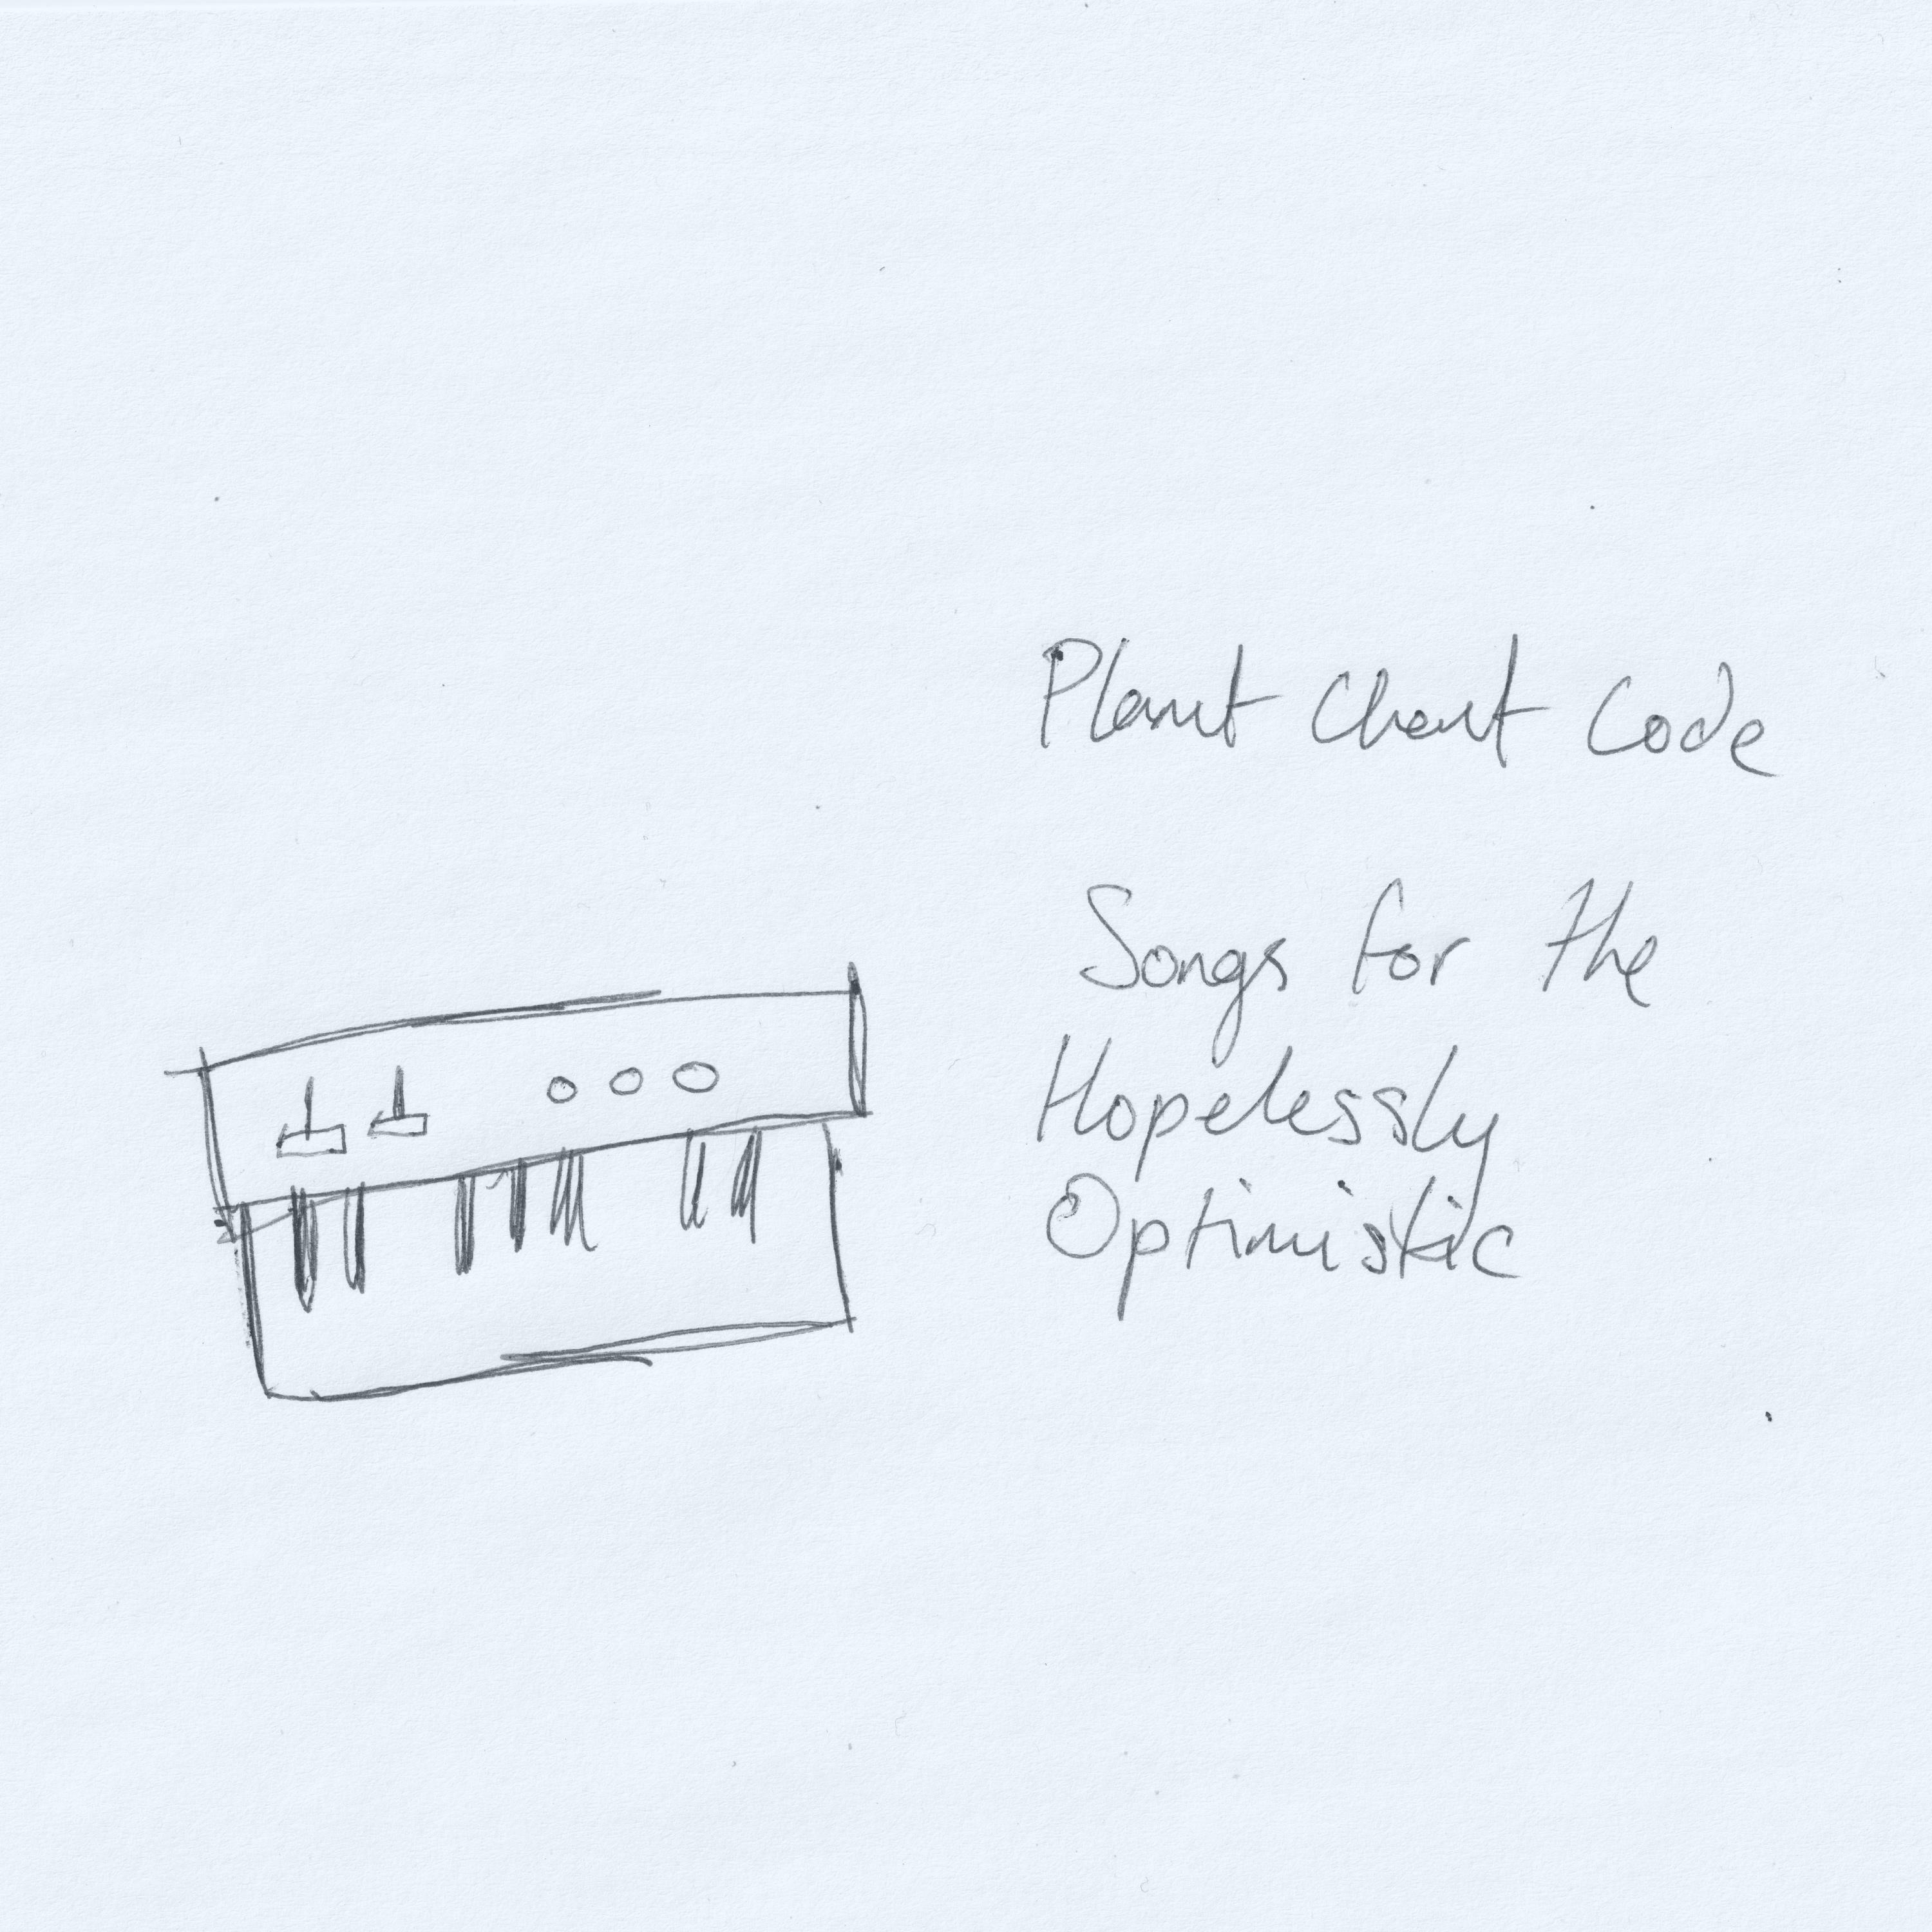 Plant Chant Code
Songs for the
Hopelessly
Optimistic